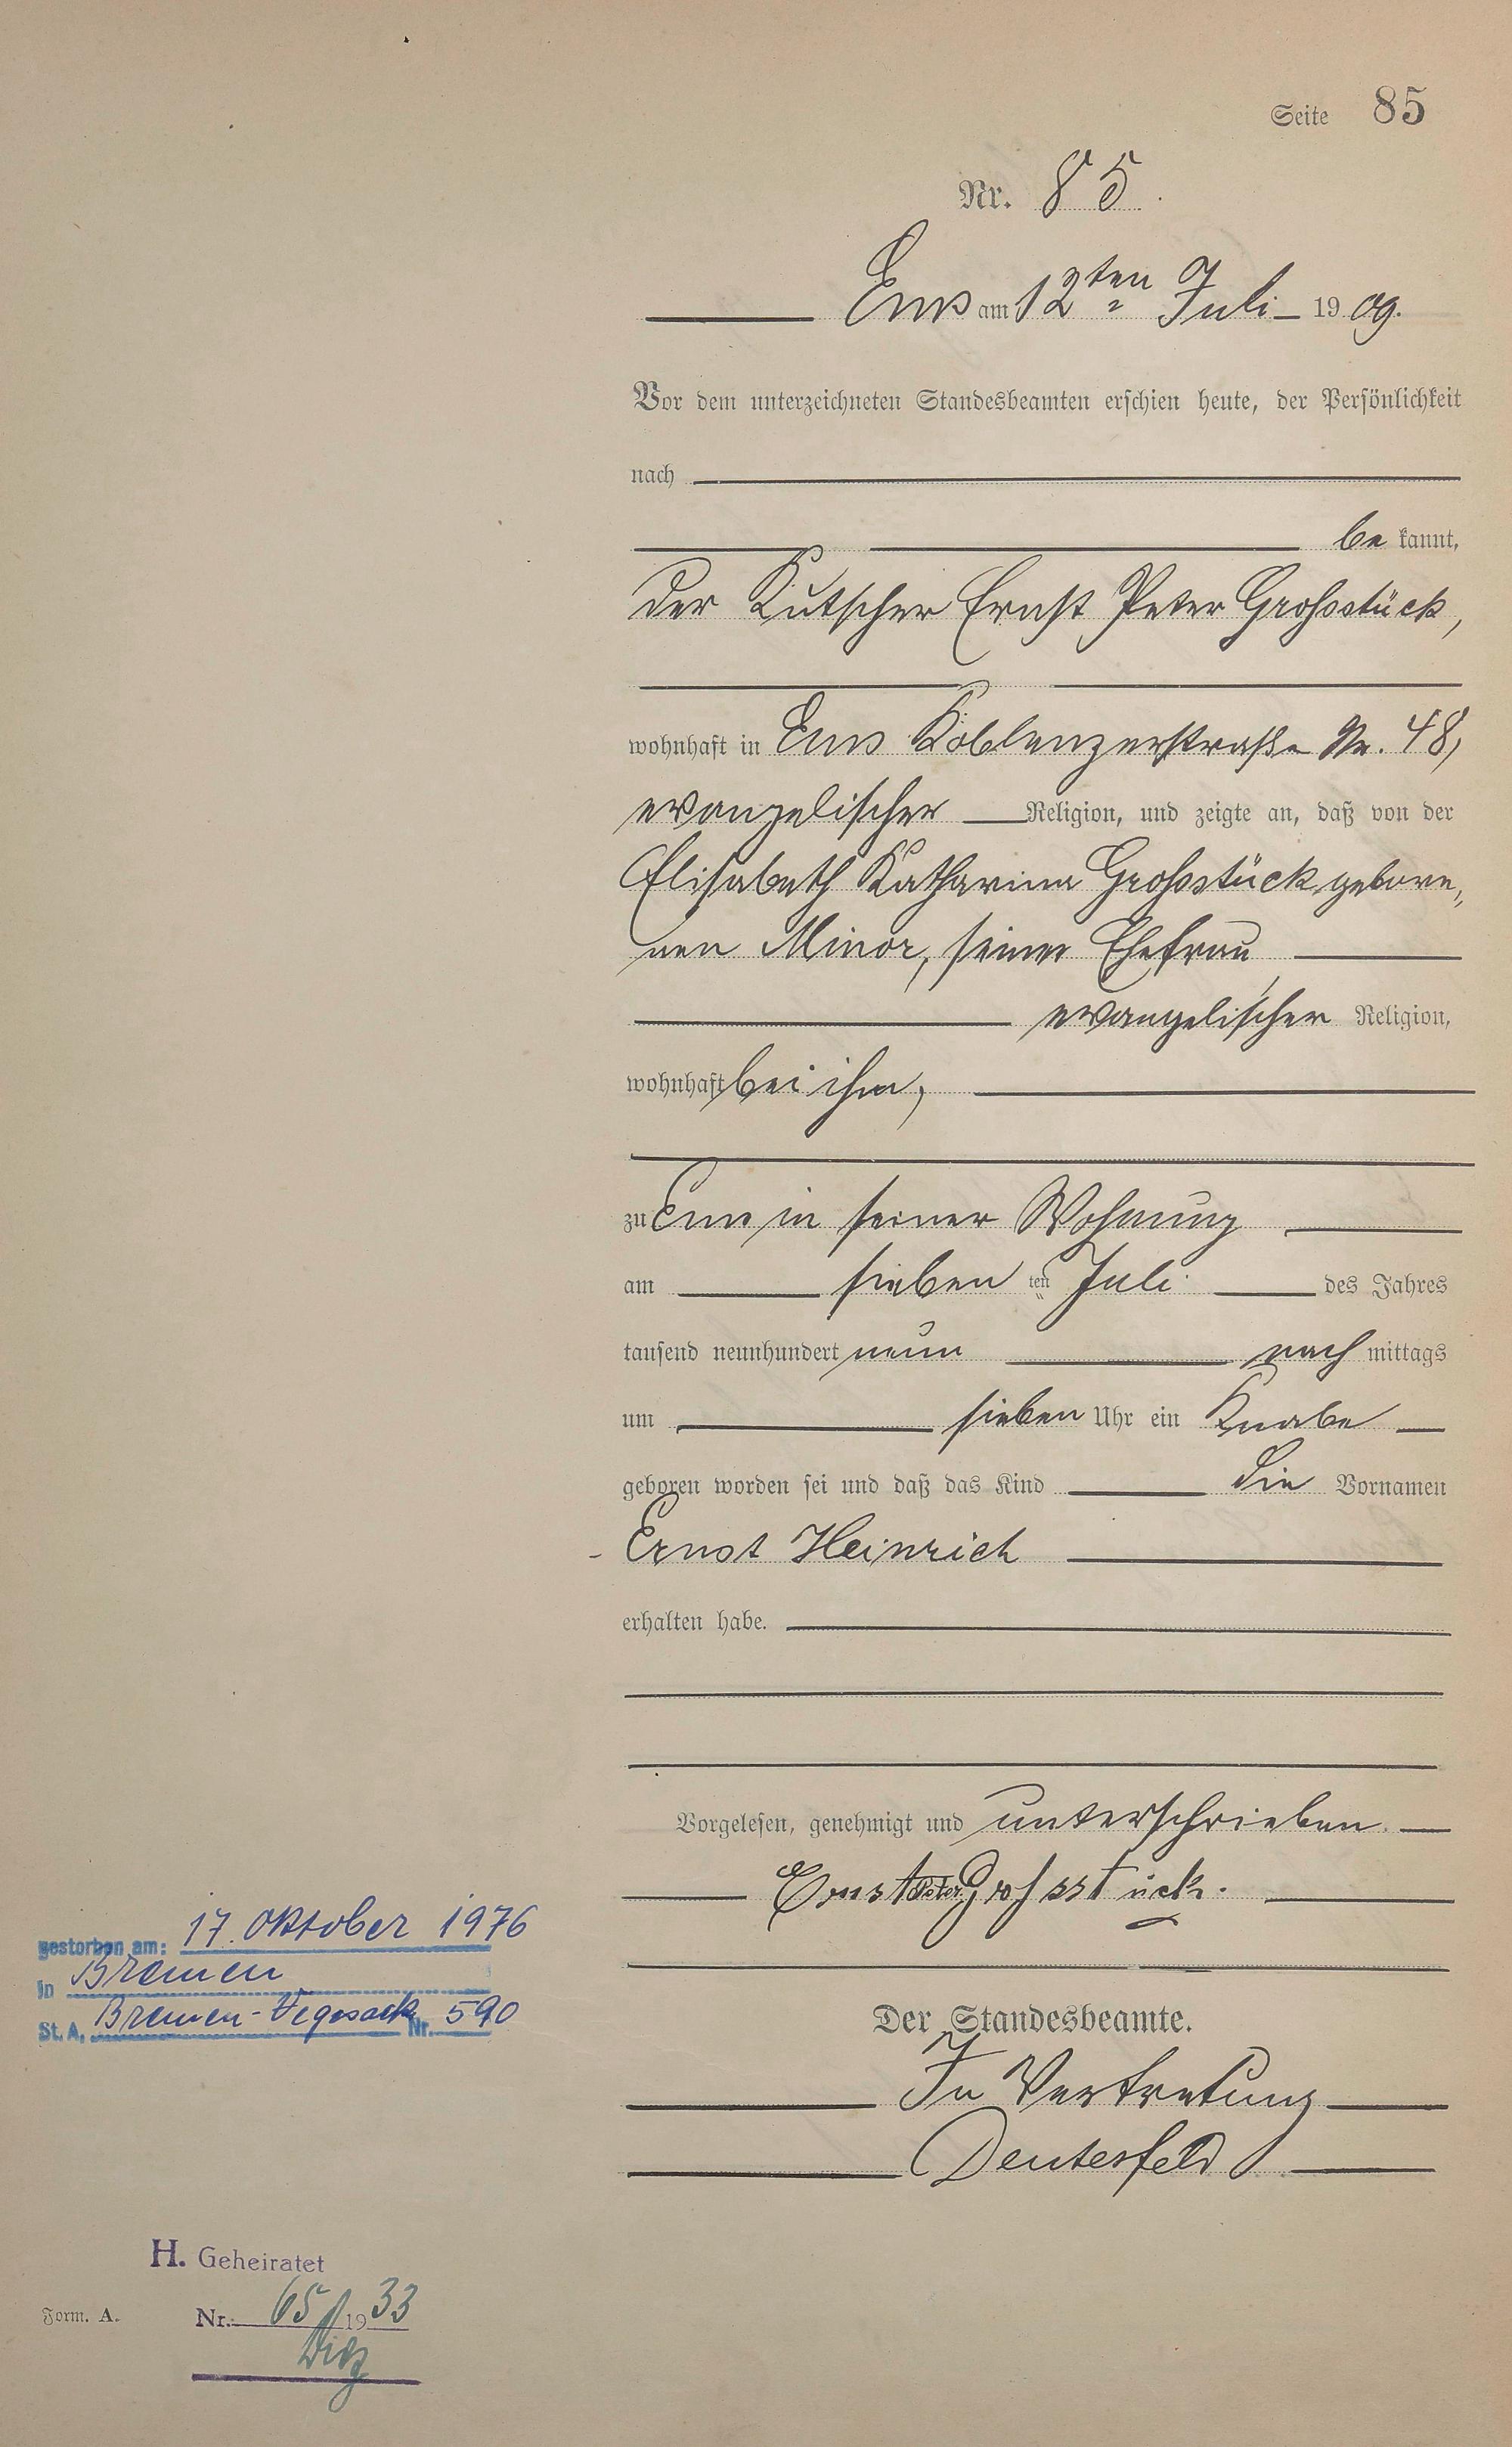 Seite 85
Nr. 85.
Ems am 12ten Juli 1909.
Vor dem unterzeichneten Standesbeamten erschien heute, der Persönlichkeit
nach
be kannt,
der Kutscher Ernst Peter Grossstück,
wohnhaft in Ems Koblenzerstraße Nr. 48,
evangelischer Religion, und zeigte an, daß von der
Elisabeth Katharina Grossstück gebore„
nen Minor, seiner Ehefrau,
evangelischer Religion,
wohnhaft bei ihm,
zu Ems in seiner Wohnung
am sieben ten Juli des Jahres
tausend neunhundert neun nach mittags
um sieben Uhr ein Knabe
geboren worden sei und daß das Kind die Vornamen
Ernst Heinrich
erhalten habe.
Vorgelesen, genehmigt und unterschrieben.
Ernst Peter Grossstück.
Der Standesbeamte.
In Vertretung
Deutesfeld
gestorben am: 17. Oktober 1976
in Bremen
St. A. Bremen-Vegesack Nr. 590
H. Geheiratet
Nr. 65/1933
Diez
Form. A.